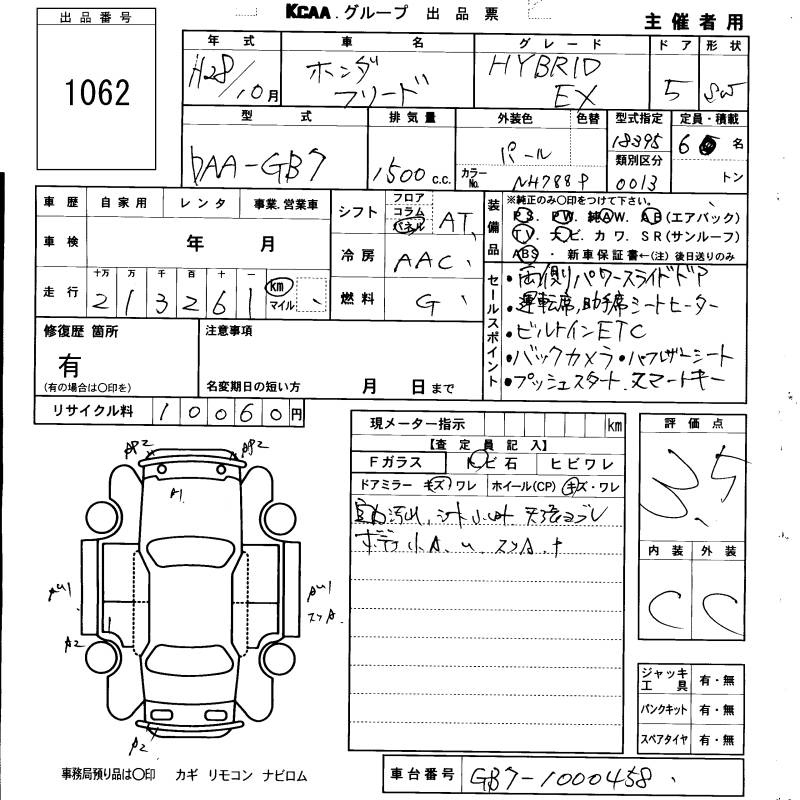 KCAA グループ 出品票
主催者用
出品番号
1062
年式 車名 グレード ドア 形状
H28/10月 ホンダ フリード HYBRID EX 5 SW
型式 排気量 外装色 色替 型式指定 定員・積載
DAA-GB7 1500 c.c. パール 18395 6 名
カラーNo. NH788P 類別区分 0013 トン
車歴 自家用 レンタ 事業.営業車
車検 年 月
走行 十万 万 千 百 十 一 km マイル
213261
シフト フロア コラム パネル AT
冷房 AAC
燃料 G
装備品 ※純正のみ〇印をつけて下さい。
PS. PW. 純AW. AB(エアバック)
TV. ナビ. カワ. SR(サンルーフ)
ABS ・ 新車保証書←(注) 後日送りのみ
セールスポイント
・両側パワースライドドア
・運転席,助手席シートヒーター
・ビルトインETC
・バックカメラ・ハーフレザーシート
・プッシュスタート.スマートキー
修復歴 箇所
有
(有の場合は〇印を)
注意事項
名変期日の短い方 月 日まで
リサイクル料 10060円
現メーター指示 km
【査定員記入】
Fガラス トビ石 ヒビワレ
ドアミラー キズ ワレ ホイール(CP) キズ・ワレ
室内汚れ、シート 天張ヨゴレ
ボディ小A.U.スリA.サ
評価点
3.5
内装 外装
C C
AP2 AP2
A1
AU1
A2
AU1
スリA.
A2
ジャッキ工具 有・無
パンクキット 有・無
スペアタイヤ 有・無
事務局預り品は〇印 カギ リモコン ナビロム
車台番号 GB7-1000458